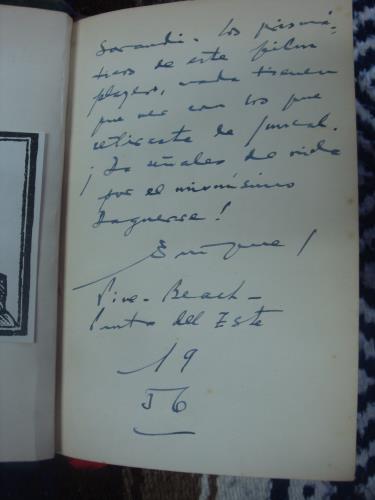 Sarandi. Los prismá-
ticos de este film
playero, nada tienen
que ver con los que
retiraste de
¡Da señales de vida
por el mismísimo
Daguerre!
Enrique!
Pine-Beach-
Punta del Este
19
56